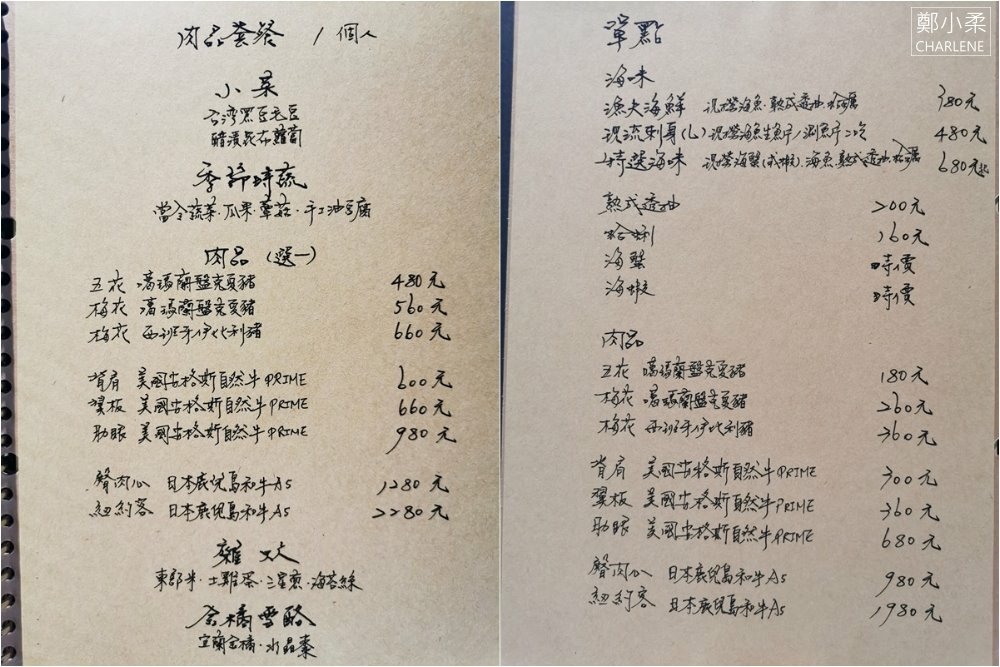 肉品套餐 / 1個人
小菜
台灣黑豆毛豆
醋漬昆布蘿蔔
季節時蔬
當令蔬菜·瓜果·蕈菇·手工油豆腐
肉品 (選一)
五花 噶瑪蘭盤克夏豬 480元
梅花 噶瑪蘭盤克夏豬 560元
梅花 西班牙伊比利豬 660元
背肩 美國安格斯自然牛PRIME 600元
翼板 美國安格斯自然牛PRIME 660元
肋眼 美國安格斯自然牛PRIME 980元
臀肉心 日本鹿兒島和牛A5 1280元
紐約客 日本鹿兒島和牛A5 2280元
雜炊
東部米·土雞蛋·三星蔥·海苔絲
金橘雪酪
宜蘭金橘·水晶棗
鄭小柔
CHARLENE
單點
海味
漁夫海鮮 現撈海魚·熟式透抽·蛤蠣 380元
現流刺身(L) 現撈海魚生魚片/涮魚片二吃 480元
特選海味 現撈海蟹(或蝦)、海魚、熟式透抽、蛤蠣 680元起
熟式透抽 200元
蛤蜊 160元
海蟹 時價
海蝦 時價
肉品
五花 噶瑪蘭盤克夏豬 180元
梅花 噶瑪蘭盤克夏豬 260元
梅花 西班牙伊比利豬 360元
背肩 美國安格斯自然牛PRIME 300元
翼板 美國安格斯自然牛PRIME 360元
肋眼 美國安格斯自然牛PRIME 680元
臀肉心 日本鹿兒島和牛A5 980元
紐約客 日本鹿兒島和牛A5 1980元